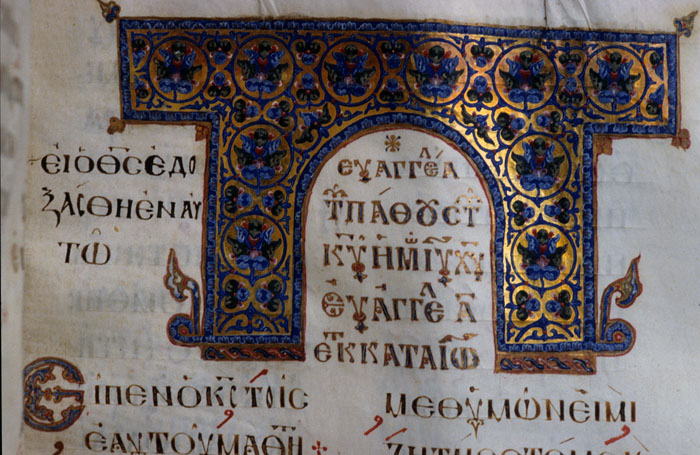 ΕΙΟΘ̅Ϲ̅ΕΔΟ
ΞΑϹΘΗΕΝΑΥ
ΤΩ
ΕΥΑΓΓΕΛ
Τ̅ΠΑΘΟΥϹΤ̅
Κ̅Υ̅ΗΜΙ̅Υ̅Χ̅Υ̅
ΕΥΑΓΓΕΛ Α̅
ΕΚΚΑΤΑΙΩ
ΕΙΠΕΝΟΚ̅Ϲ̅ΤΟΙϹ
ΕΑΥΤΟΥΜΑΘΗ
ΜΕΘΥΜΩΝΕΙΜΙ